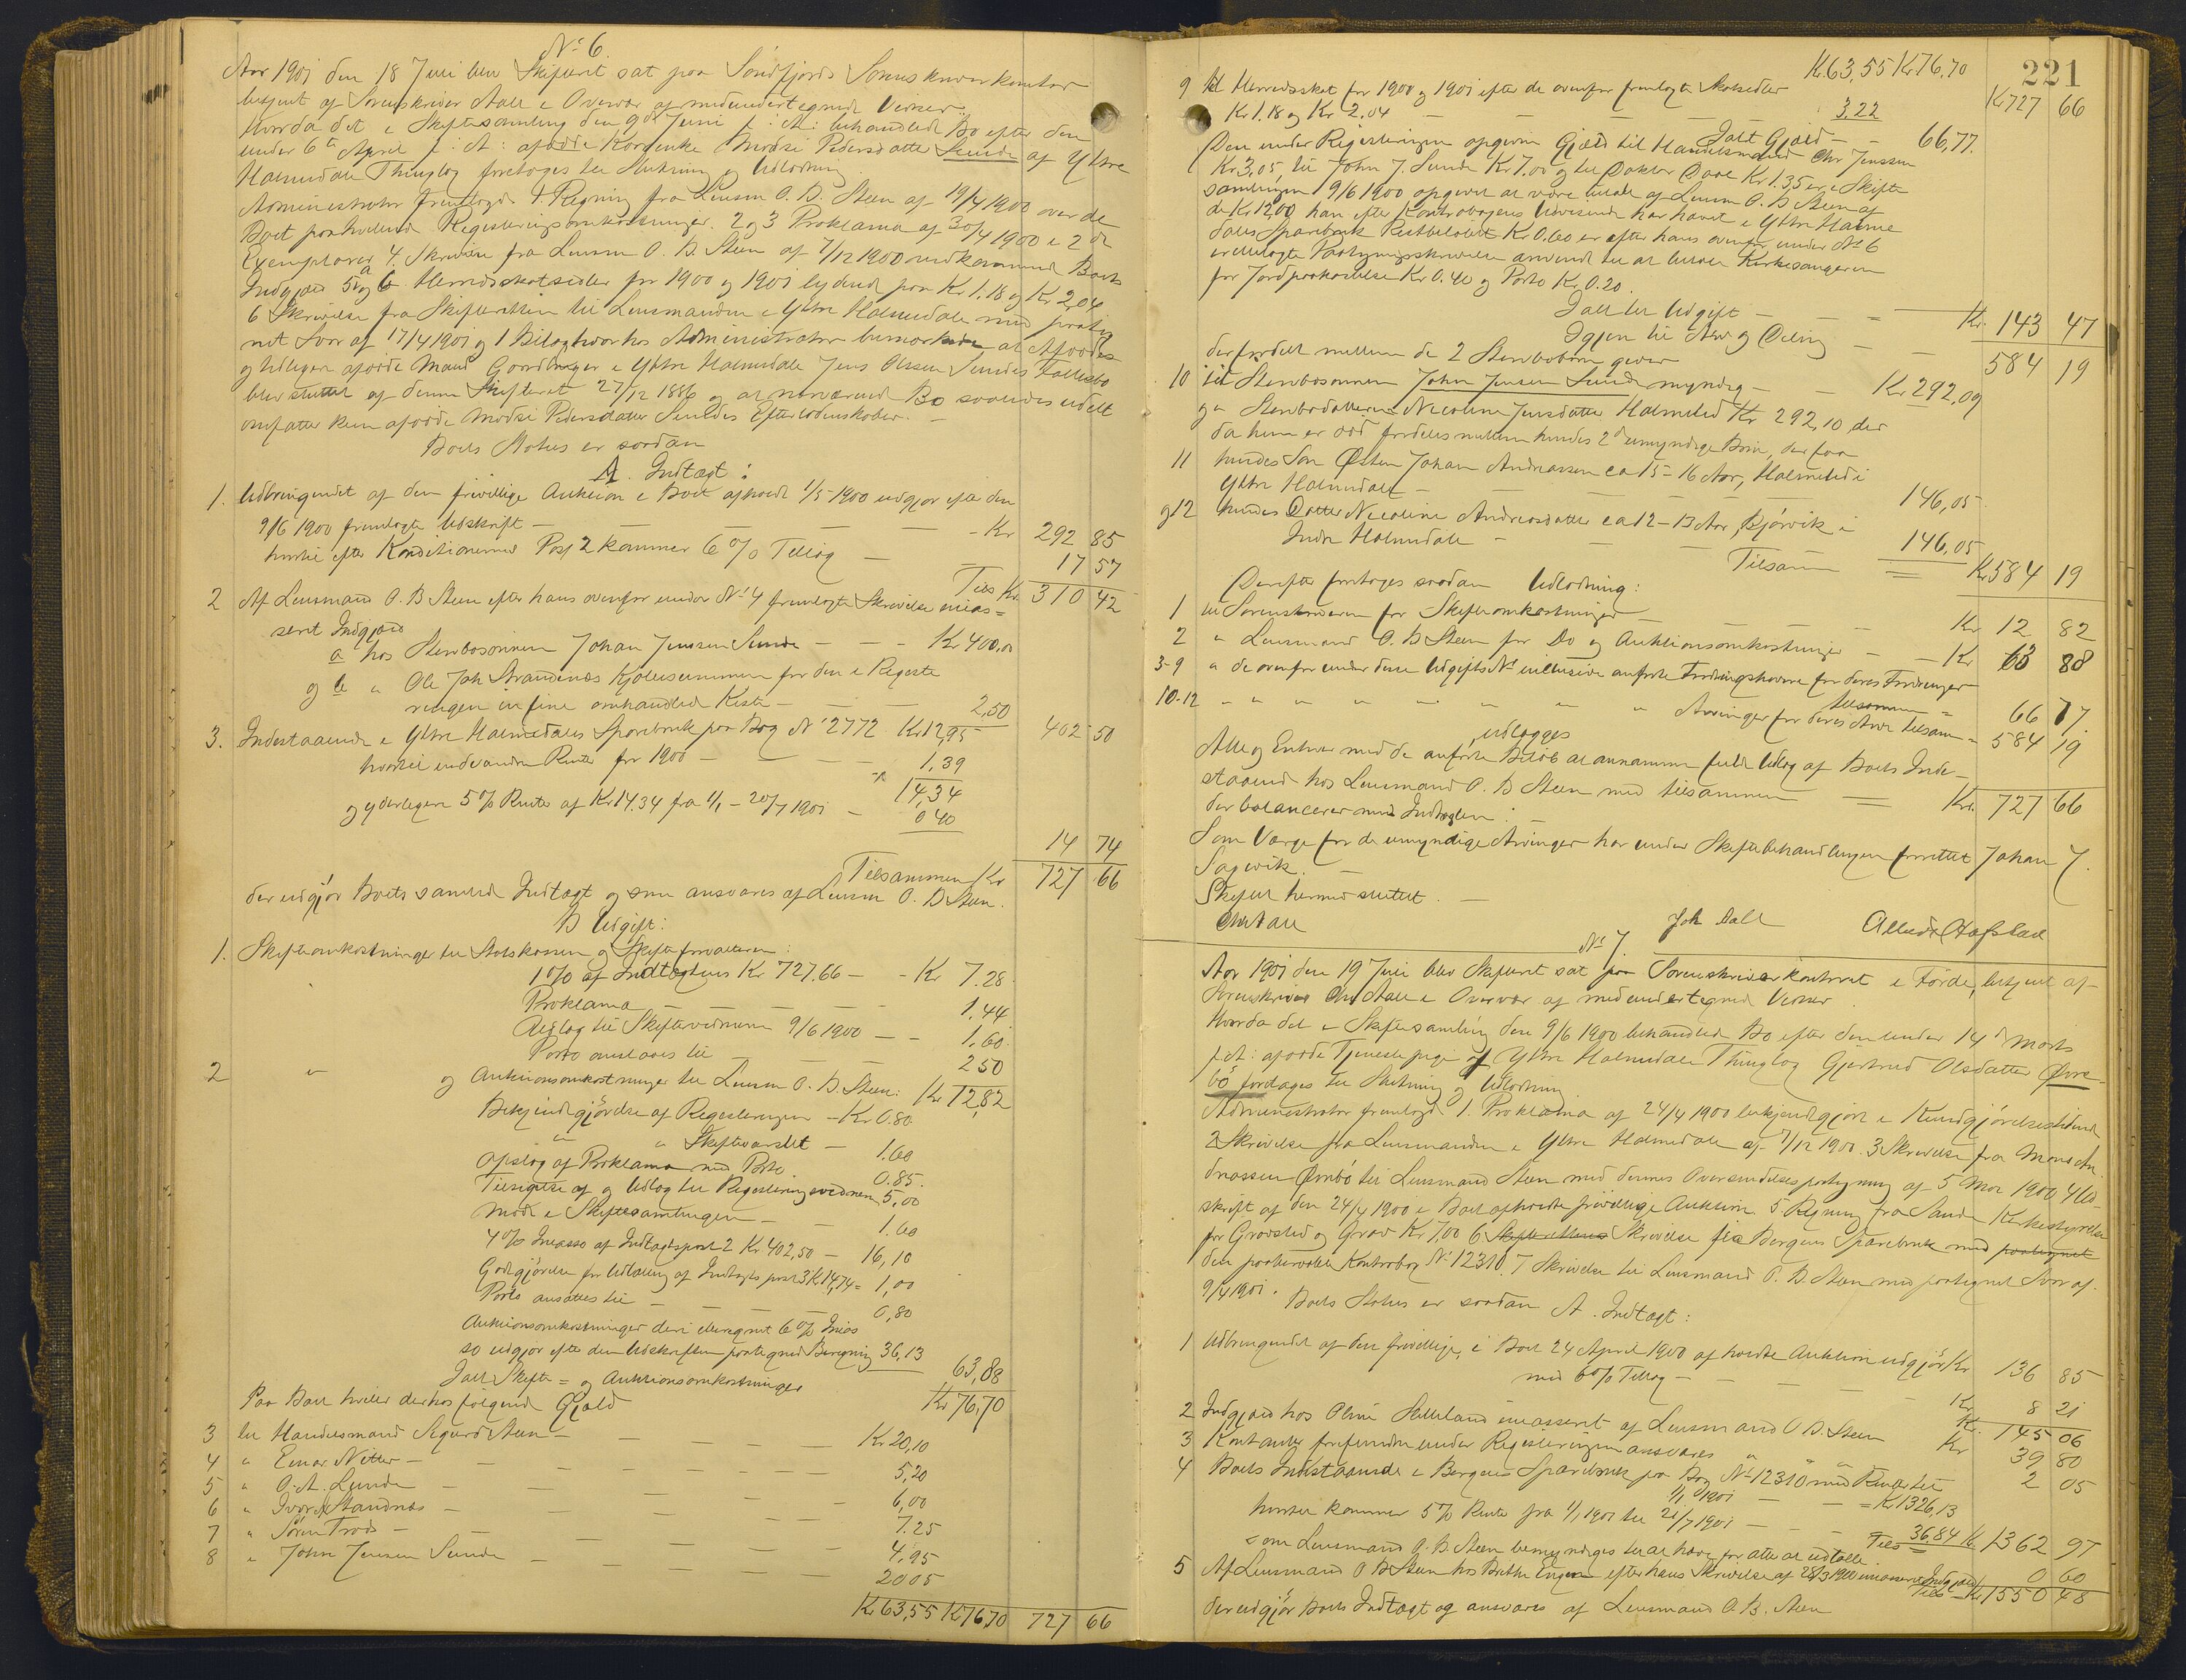 No 6.
Aar 1901 den 18 Juni blev Skifteret sat paa Søndfjords Sorenskriverkontor
betjent af Sorenskriver Aall i Overvær af medundertegnede Vidner.
Hvorda det i Skiftesamling den 9de Juni f: A: behandlede Bo efter den
under 6te April f: A: afdøde Kaarenke Madsi Pedersdatter Sunde af Ytre
Holmedals Thinglag foretoges til Slutning og Udlodning.
Administrator fremlagde 1. Regning fra Lensm O. B. Steen af 19/4 1900 over de
Boet paahvilende Registeringsomkostninger. 2 og 3 Proklama af 30/4 1900 i 2 de
Exemplarer 4. Skrivelse fra Lensm O. B. Steen af 7/12 1900 vedkommende Boets
Indgjæld 5 a og b Herredsskatsedler for 1900 og 1901 lydende paa Kr 1.18 og Kr 2,04
6 Skrivelse fra Skifteretten til Lensmanden i Ytre Holmedale med paateg
net Svar af 17/4 1901 og 1 Bilag hvorhos Administrator bemærkede, at Afdødes
og tidligere afdøde Mand Gaardbruger i Ytre Holmedale Jens Olssen Sundes Fællesbo
blev sluttet af denne Skifteret 27/12 1886 og at nærværende Bo saaledes udelt
omfatter kun afdøde Madsi Pedersdatter Sundes Efterladenskaber. –
Boets Status er saadan
A. Indtægt:
1. Udbringendet af den frivillige Auktion i Boet afholdt 1/5 1900 udgjør efter den
9/6 1900 fremlagte Udskrift – Kr 292 85
hvortil efter Konditionernes Post 2 kommer 6 % Tillæg – 17 57
Tils Kr. 310 42
2 Af Lensmand O. B. Steen efter hans ovenfor under No 4 fremlagte Skrivelse incas=
seret Indgjæld
a hos Stervbosønnen Johan Jenssen Sunde – – – Kr 400,00
og b " Ole Joh Strandenæs Kjøbesummen for den i Registe
ringen in fine omhandlede Kiste – 2,50
402 50
3. Indestaaende i Ytre Holmedales Sparebank paa Bog No 2772 Kr 12,95
hvortil indvundne Renter for 1900 – 1,39
14,34
og yderligere 5 % Renter af Kr 14.34 fra 1/1 – 20/7 1901 – 0 40
14 74
Tilsammen Kr 727 66
der udgjør Boets samlede Indtægt og som ansvares af Lensm O. B. Steen.
B Udgift:
1. Skifteomkostninger til Statskassen og Skifteforvalteren:
1 % af Indtægtens Kr 727.66 – – Kr 7.28
Proklama – 1.44
Udlæg til Skiftevidnerne 9/6 1900 – – 1,60.
Porto ansættes til – 2 50
Kr 12,82
2 " og Auktionsomkostninger til Lensm O. B. Steen:
Bekjendtgjørelse af Registeringen – Kr 0.80.
" " Skiftevarslet – 1.60
Opslag af Proklama med Porto 0.85.
Tilsigelse af og Udlæg til Registeringsvidnerne 5,00
Møde i Skiftesamlingen – – 1.60
4 % Incasso af Indtægtspost 2 Kr 402,50 – 16,10
Godtgjørelse for Udtælling af Indtægts post 3 Kr 14,74 = 1,00
Porto ansættes til – 0,80
Auktionsomkostninger deri iberegnet 6 % Incas
so udgjør efter den Udskriften paategnede Beregning 36,13
63,88
Ialt Skifte= og Auktionsomkostninger Kr 76,70
Paa Boet hviler derhos følgende Gjæld
3 til Handelsmand Sigurd Steen – Kr 20,10
4 " Einar Nitter – 5,20
5 " O. A. Lunde – 6,00
6 " Ivar Standnæs – 7.25
7 " Søren Trads – 4.95
8 " John Jenssen Sunde – 20 05
Kr 63,55 Kr 76,70 727 66
221
Kr. 63,55 Kr 76,70
Kr 727 66
9 til Herredsskat for 1900 og 1901 efter de ovenfor fremlagte Skatsedler
Kr 1.18 og Kr 2.04 – 3.22
Ialt Gjæld – 66,77.
Den under Registeringen opgivne Gjæld til Handelsmand Chr Jenssen
Kr 3,05, til John J. Sunde Kr 7.00 og til Doktor Daae Kr 1.35 er i Skifte
samlingen 9/6 1900 opgivet at være betalt af Lensm O. B Steen af
de Kr 12,00 han efter Kontrabogens Udvisende har hævet i Ytre Holme
dales Sparebank Restbeløbet Kr 0.60 er efter hans ovenfor under No 6
omhandlede Paategningsskrivelse anvendt til at betale Kirkesangeren
for Jordpaakastelse Kr 0.40 og Porto Kr 0.20.
Ialt til Udgift – Kr. 143 47
Igjen til Arv og Deling – – 584 19
der fordelt mellem de 2 Stervbobørn giver
10 til Stervbosønnen John Jensen Sunde myndig – Kr 292,09
og " Stervbodatteren Nicoline Jensdatter Holmelid Kr 292,10, der
da hun er død fordeles mellem hendes 2de umyndige Børn, der faa
11 hendes Søn Østen Johan Andreassen ca 15–16 Aar, Holmelid i
Ytre Holmedale – 146,05
og 12 hendes Datter Nicoline Andreasdatter ca 12–13 Aar, Bjørvik i
Indre Holmedale – 146,05
Tilsam – Kr 584 19
Derefter foretoges saadan Udlodning:
1 til Sorenskriveren for Skifteomkostninger – Kr 12 82
2 " Lensmand O. B Steen for Do og Auktionsomkostninger – – Kr 63 88
3-9 " de ovenfor under disse Udgifts No inklusive anførte Fordringshavere for deres Fordringer
tilsammen – 66 77.
10-12 " " " " " " " " Arvinger for deres Arv tilsam – 584 19
udlægges
Alle og Enhver med de anførte Beløb at annamme fuld Udlæg af Boets Inde-
staaende hos Lensmand O. B Steen med tilsammen – Kr. 727 66
der balancerer med Indtægten. –
Som Værge for de umyndige Arvinger har under Skiftebehandlingen forrettet Johan J.
Sagevik. –
Skiftet hermed sluttet. –
Chr Aall
Joh Dall
Alfred Hafstad
No 7.
Aar 1901 den 19 Juni blev Skifteret sat paa Sorenskriverkontoret i Førde, betjent af
Sorenskriver Chr Aall i Overvær af medundertegnede Vidner.
Hvorda det i Skiftesamling den 9/6 1900 behandlede Bo efter den under 14de Marts
f: A: afdøde Tjenestepige af Ytre Holmedale Thinglag Gjertrud Olsdatter Øvre-
bø foretages til Slutning og Udlodning
Administrator fremlagde 1. Proklama af 24/4 1900 bekjendtgjort i Kundgjørelsestidende
2 Skrivelse fra Lensmanden i Ytre Holmedale af 7/12 1900. 3 Skrivelse fra Mons An
dreassen Øvrebø til Lensmand Steen med dennes Oversendelsespaategning af 5 Mai 1900, 4 Ud-
skrift af den 24/4 1900 i Boet afholdte frivillige Auktion. 5. Regning fra Sande Kirkestyrelse
for Gravsted og Grav Kr 7,00 6 Skifterettens Skrivelse fra Bergens Sparebank med paategnet
den paaberaabte Kontrabog No 12310. 7 Skrivelse til Lensmand O. B. Steen med paategnet Svar af
9/4 1901. Boets Status er saadan A. Indtægt:
1 Udbringendet af den frivillige, i Boet 24 April 1900 afholdte Auktion udgjør Kr 136 85
med 6 % Tillæg – Kr 8 21
Kr. 145 06
2 Indgjæld hos Oline Sælleland incasseret af Lensmand O B. Steen Kr 39 80
3 Kontanter forefundne under Registeringen ansvares " " 2 05
4 Boets Indestaaende i Bergens Sparebank paa Bog No 12310 med Renter til
1/1 1901 – – = Kr 1326,13
hvortil kommer 5 % Rente fra 1/1 1901 til 21/7 1901 – – – 36.84 Kr. 1362 97
som Lensmand O. B. Steen bemyndiges til at hæve for atter at udtælle. Tils =
5 Af Lensmand O B Steen hos Brithe Engen efter hans Skrivelse af 28/3 1900 incasseret Indgjæld 0 60
Tils – Kr 1550 48
der udgjør Boets Indtægt og ansvares af Lensmand O. B. Steen